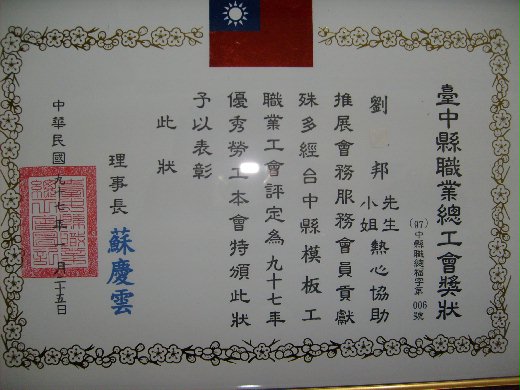 臺中縣職業總工會獎狀
(97)中縣職總福字第006號
劉 邦 先生 小姐 熱心協助
推展會務服務會員貢獻
殊多經台中縣模板工
職業工會評定為九十七年
優秀勞工本會特頒此狀
予以表彰
此狀
理事長 蘇慶雲
中華民國九十七年一月二十五日